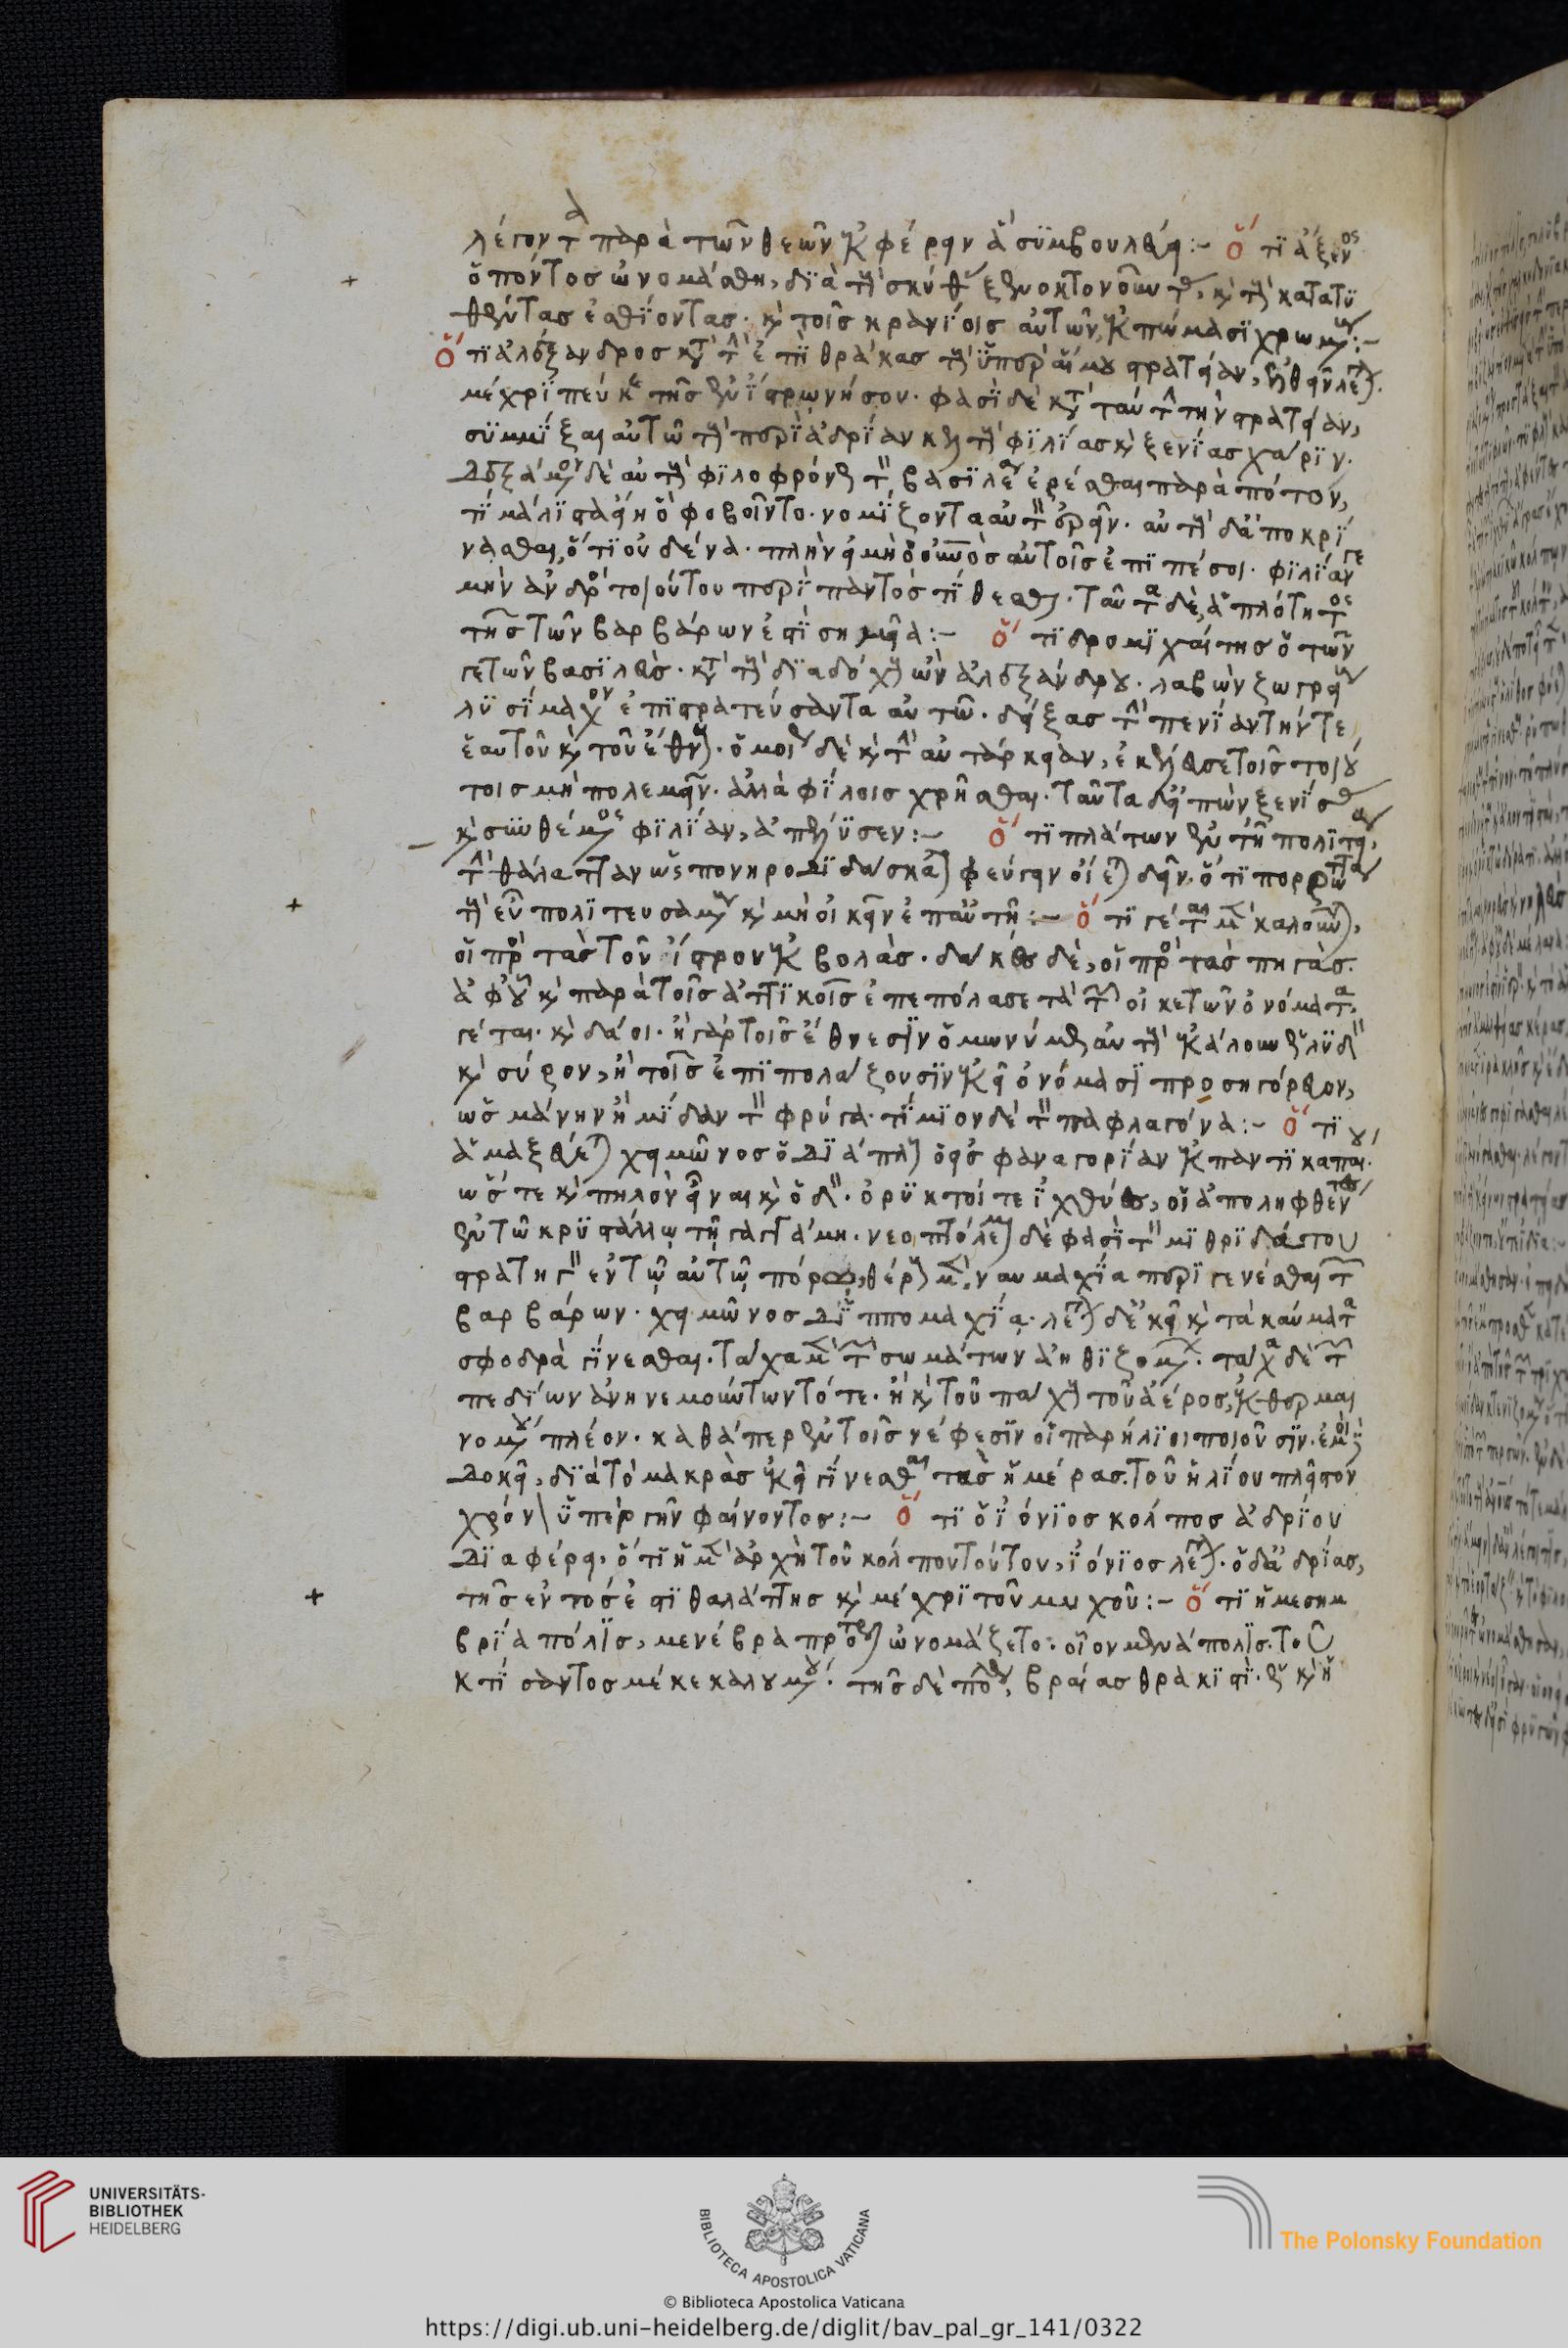 λέγοντα παρὰ τῶν θεῶν ἐκφέρειν ἃ συμβουλεύει :- ὅτι ἄξενος
ὁ πόντος ὠνομάσθη, διὰ τὴν σκυθῶν ξενοκτονούντων, καὶ τὴν κατατυ
θέντας ἐσθίοντας · καὶ τοῖς κρανίοις αὐτῶν, ἐκπώμασι χρωμένων :-
ὅτι ἀλέξανδρος κατὰ τὴν ἐπὶ θράκας τὴν ὑπὲρ αἵμου στρατείαν, ἐλθεῖν λέγεται
μέχρι πεύκης τῆς ἐν ἴστρῳ νήσου · φασὶ δὲ κατὰ ταύτην τὴν στρατείαν,
συμμίξαι αὐτῷ τὴν περὶ ἀδρίαν κελτὴν φιλίας καὶ ξενίας χάριν ·
δεξάμενον δὲ αὐτὴν φιλοφρόνως τὸν βασιλέα ἐρέσθαι παρὰ πότον,
τί μάλιστα εἴη ὃ φοβοῖντο · νομίζοντα αὐτὸν ἐρεῖν · αὐτὴν δ' ἀποκρί
νασθαι, ὅτι οὐδένα · πλὴν εἰ μὴ ὁ οὐρανὸς αὐτοῖς ἐπιπέσοι · φιλίαν γε
μὴν ἀνδρὸς τοιούτου περὶ παντὸς τίθεσθαι · ταῦτα δὲ, ἁπλότητος
τῆς τῶν βαρβάρων ἐστὶ σημεῖα :- ὅτι δρομιχαίτης ὁ τῶν
γετῶν βασιλεὺς · κατὰ τὴν διαδόχων ἀλεξάνδρου · λαβὼν ζωγρείαν
λυσίμαχον ἐπιστρατεύσαντα αὐτῷ · δείξας τὴν πενίαν τήν τε
ἑαυτοῦ καὶ τοῦ ἔθνους · ὁμοίως δὲ καὶ τὴν αὐτάρκειαν, ἐκέλευσε τοῖς τοιού
τοις μὴ πολεμεῖν · ἀλλὰ φίλοις χρῆσθαι · ταῦτα δ' εἰπὼν ξενίσας
καὶ συνθέμενος φιλίαν, ἀπέλυσεν :- ὅτι πλάτων ἐν τῇ πολιτείᾳ,
τὴν θάλατταν ὡς πονηροδιδάσκαλον φεύγειν οἴεται δεῖν · ὅτι πορρωτάτω
τὴν εὖ πολιτευσαμένην καὶ μὴ οἰκεῖν ἐπ' αὐτῇ :- ὅτι γέται μὲν καλοῦνται,
οἱ πρὸς τὰς τοῦ ἴστρου ἐκβολὰς · δάκες δὲ, οἱ πρὸς τὰς πηγὰς ·
ἀφ' οὗ καὶ παρὰ τοῖς ἀττικοῖς ἐπεπόλασε τὰ τῶν οἰκετῶν ὀνόματα,
γέται · καὶ δάοι · ἢ γὰρ τοῖς ἔθνεσιν ὁμωνύμως αὐτὴν ἐκάλουν ὡς λυδὸν
καὶ σύρον, ἢ τοῖς ἐπιπολάζουσιν ἐκεῖ ὀνόμασι προσηγόρευον,
ὡς μάνην ἢ μίδαν τὸν φρύγα · τίμιον δὲ τὸν παφλαγόνα :- ὅτι
ἁμαξεύεται χειμῶνος ὁ διάπλους ὁ εἰς φαναγορίαν ἐκ παντικαπαίου ·
ὥστε καὶ πηλὸν εἶναι καὶ ὁδὸν · ὀρυκτοί τε ἰχθύες, οἱ ἀποληφθέντες
ἐν τῷ κρυστάλλῳ τῇ γαγγάμῃ · νεοπτόλεμον δὲ φασὶ τὸν μιθριδάτου
στρατηγὸν ἐν τῷ αὐτῷ πόρῳ, θέρους μὲν, ναυμαχίᾳ περιγενέσθαι τῶν
βαρβάρων · χειμῶνος δὲ ἱππομαχίᾳ · λέγεται δὲ ἐκεῖ καὶ τὰ καύματα
σφοδρὰ γίνεσθαι · τάχα μὲν τῶν σωμάτων ἀηθιζομένων · τάχα δὲ τῶν
πεδίων ἀνηνεμούντων τότε · ἢ καὶ τοῦ πάχους τοῦ ἀέρος, ἐκθερμαι
νομένου πλέον · καθάπερ ἐν τοῖς νέφεσιν οἱ παρήλιοι ποιοῦσιν · ἐμοὶ δὲ
δοκεῖ, διὰ τὸ μακρὰς ἐκεῖ γίνεσθαι τὰς ἡμέρας · τοῦ ἡλίου πλεῖστον
χρόνον ὑπὲρ γῆν φαίνοντος :- ὅτι ὁ ἰόνιος κόλπος ἀδρίου
διαφέρει, ὅτι ἡ μὲν ἀρχὴ τοῦ κόλπου τούτου, ἰόνιος λέγεται · ὁ δ' ἀδρίας,
τῆς ἐντός ἐστι θαλάττης καὶ μέχρι τοῦ μυχοῦ :- ὅτι ἡ μεσημ
βρία πόλις, μενέβρα πρότερον ὠνομάζετο · οἷον μένα πόλις · τοῦ
κτίσαντος μένε καλουμένου · τῆς δὲ πόλεως, βραίας θρᾳκιστί · ὡς καὶ ἡ
UNIVERSITÄTS-
BIBLIOTHEK
HEIDELBERG
BIBLIOTECA APOSTOLICA VATICANA
The Polonsky Foundation
© Biblioteca Apostolica Vaticana
https://digi.ub.uni-heidelberg.de/diglit/bav_pal_gr_141/0322